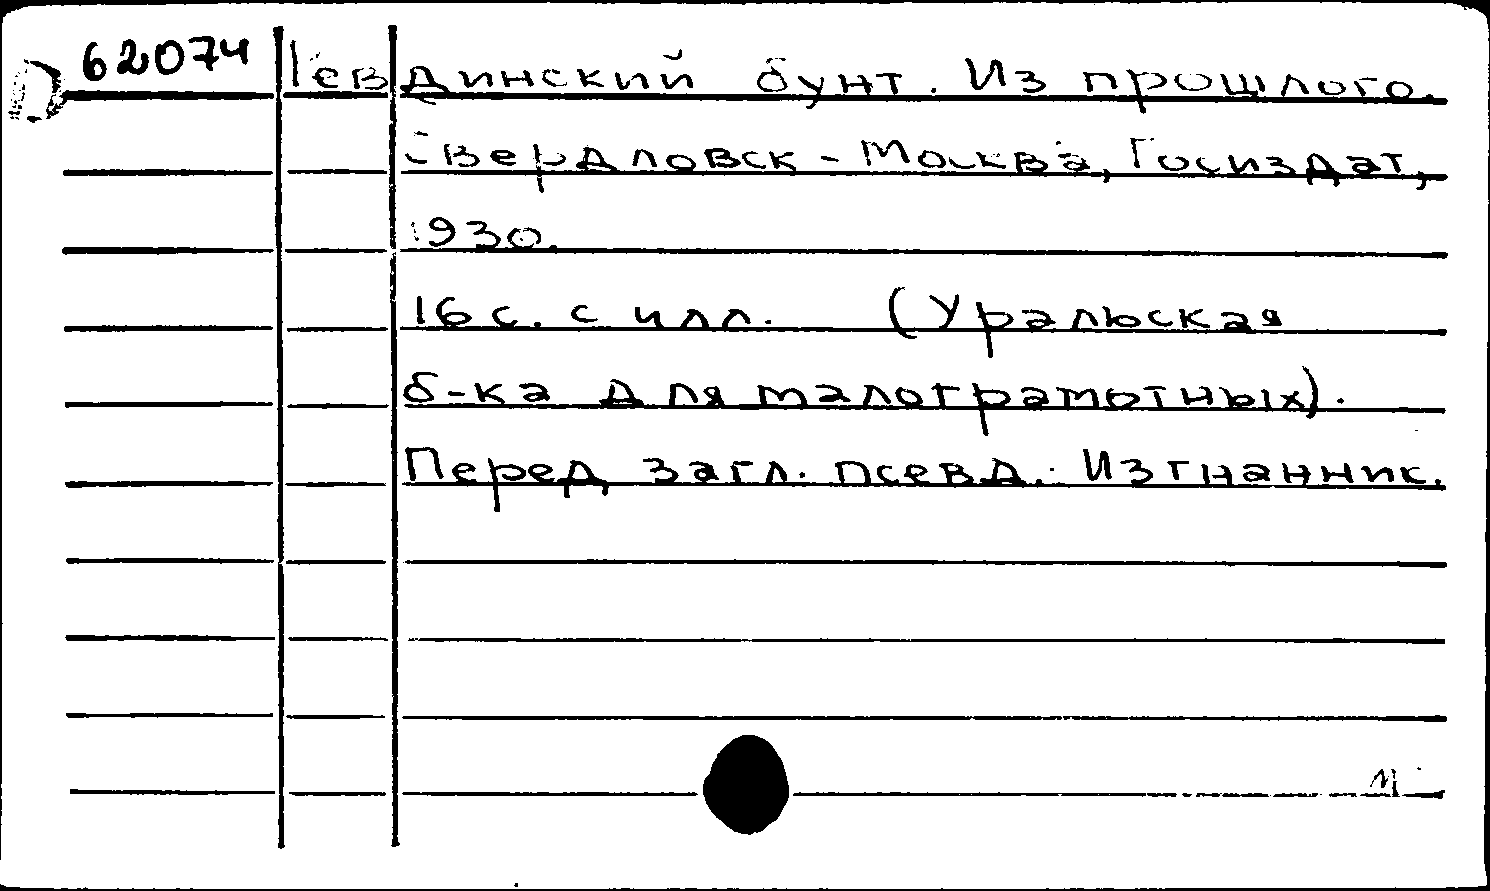 62074 Ревдинский бунт. Из прошлого.
Свердловск - Москва, Госиздат,
1930.
16 с. с илл. (Уральская
б-ка для малограмотных).
Перед загл. псевд.: Изгнанник.